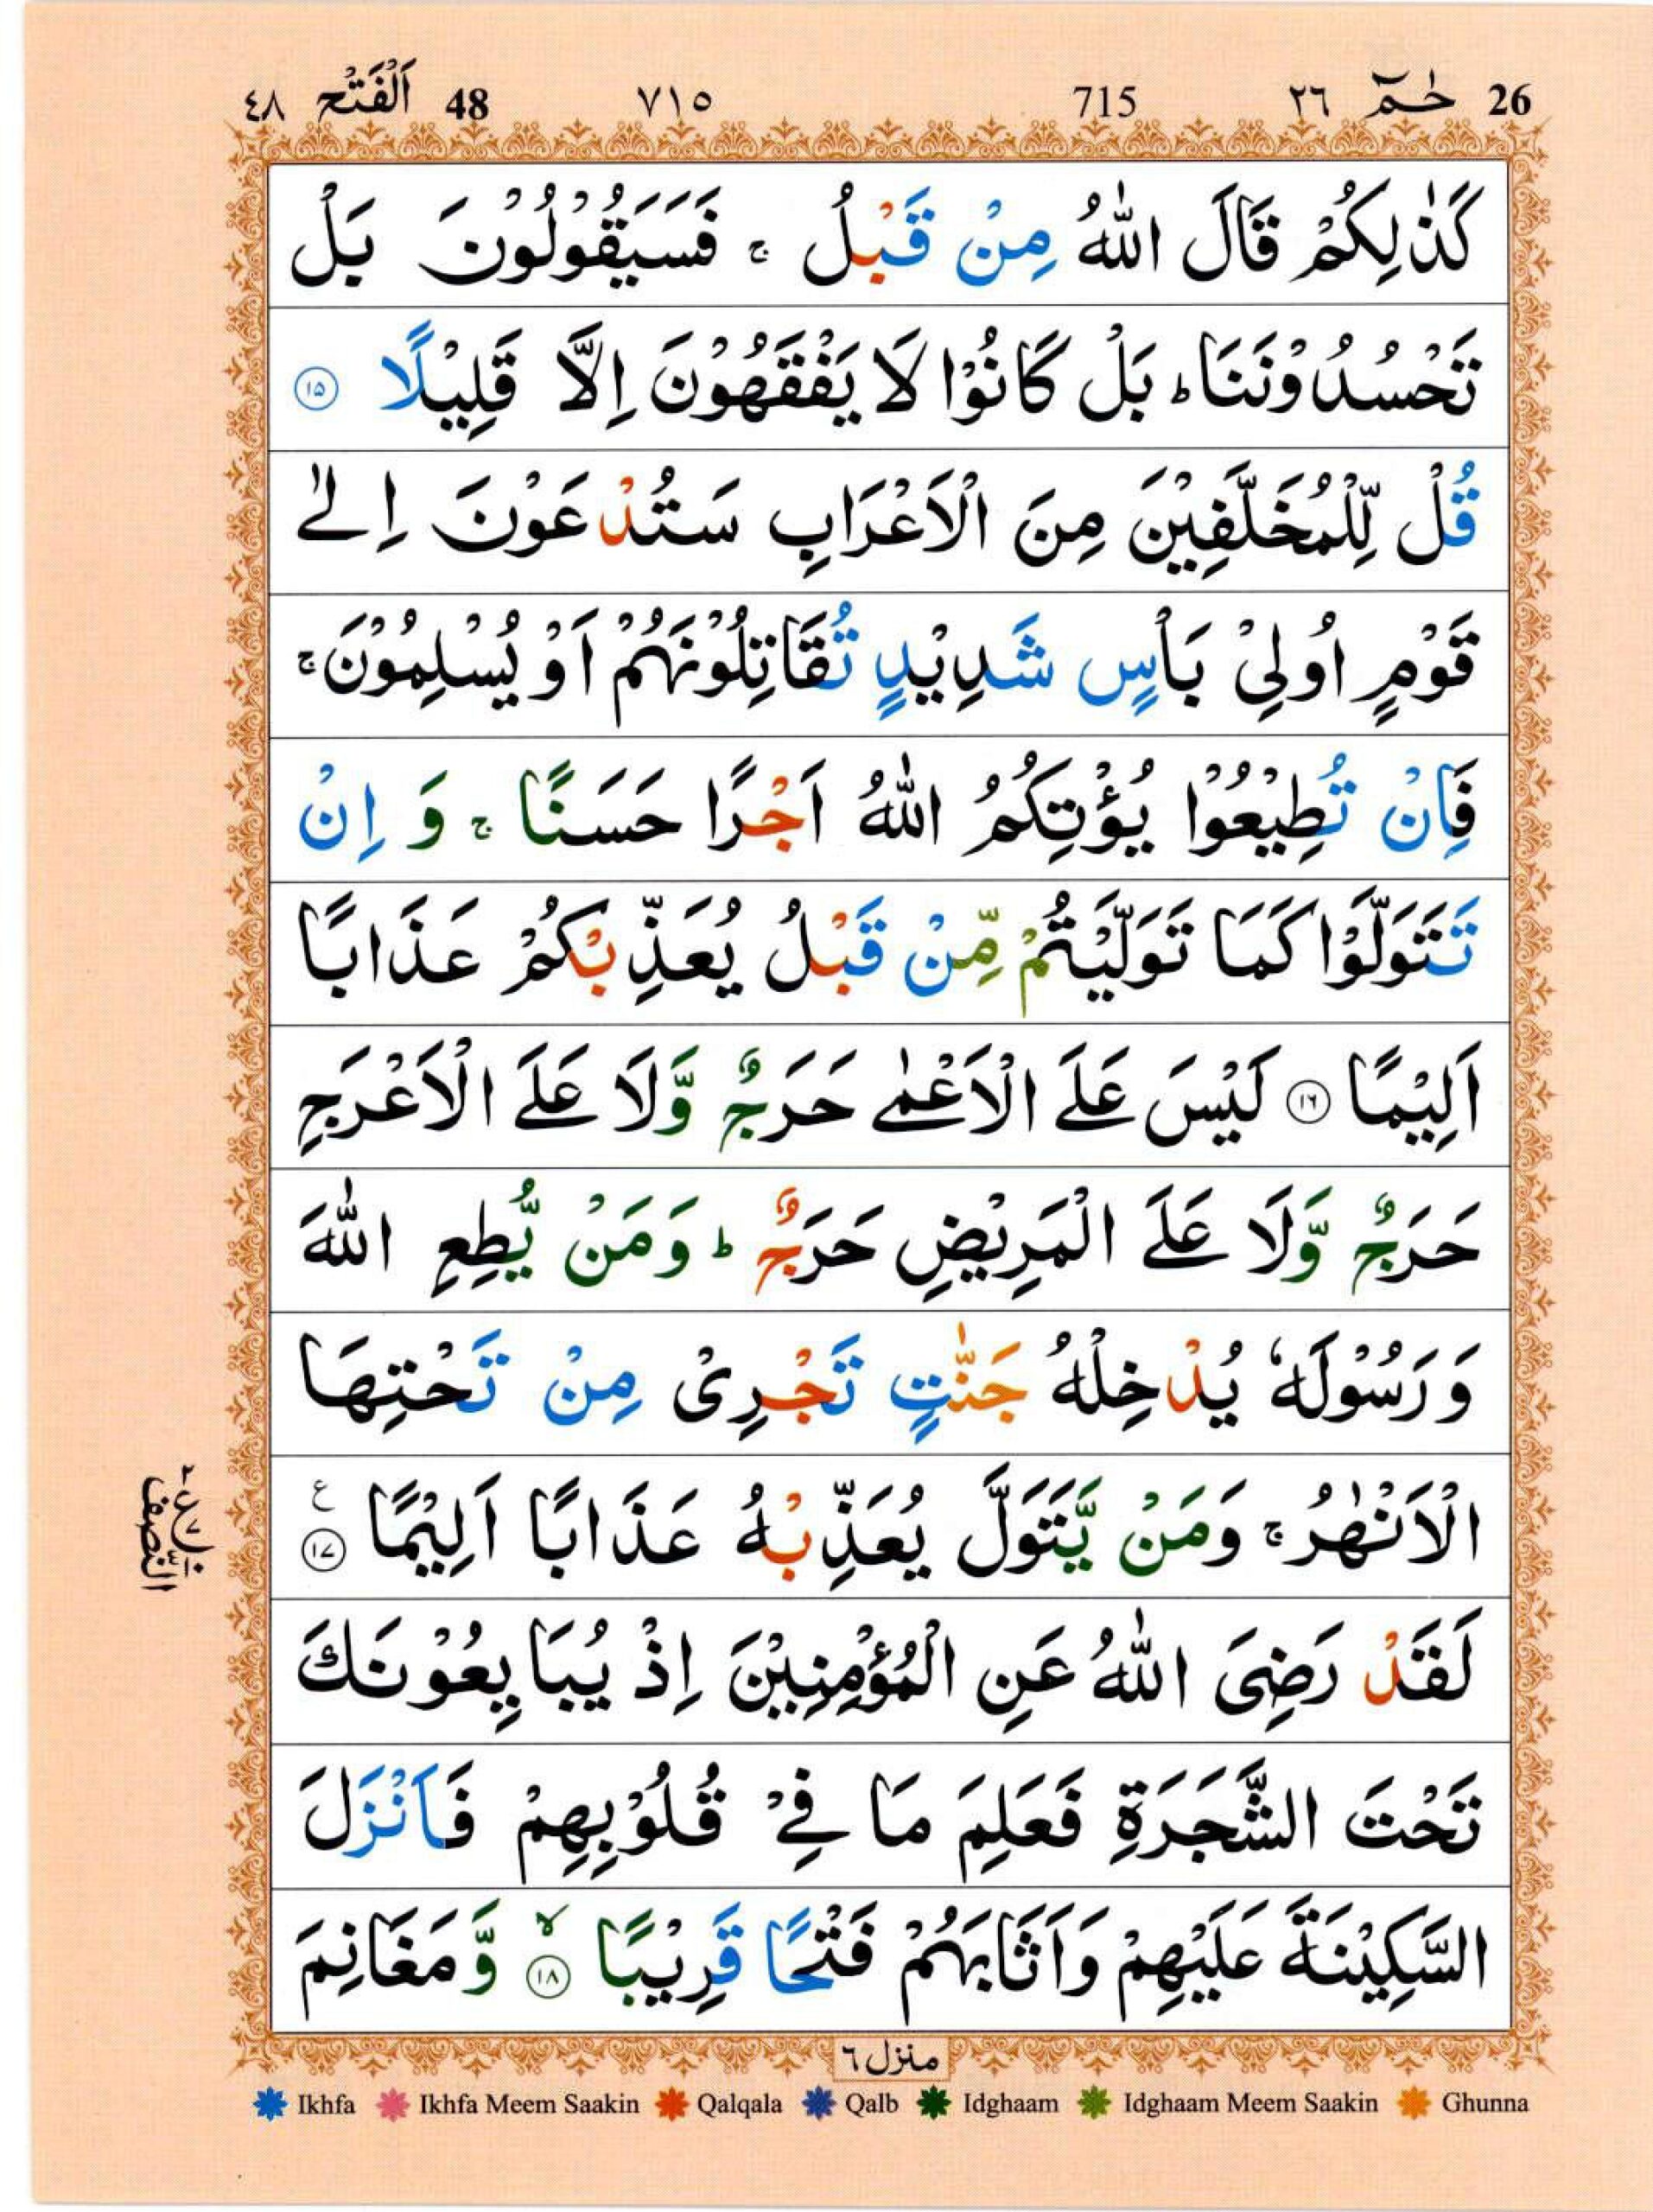 26 حٰمٓ ٢٦ 715 ٧١٥ 48 اَلْفَتْح ٤٨
كَذٰلِكُمْ قَالَ اللّٰهُ مِنْ قَبْلُ ۚ فَسَيَقُوْلُوْنَ بَلْ
تَحْسُدُوْنَنَا ؕ بَلْ كَانُوْا لَا يَفْقَهُوْنَ اِلَّا قَلِيْلًا ۱۵
قُلْ لِّلْمُخَلَّفِيْنَ مِنَ الْاَعْرَابِ سَتُدْعَوْنَ اِلٰى
قَوْمٍ اُولِيْ بَاْسٍ شَدِيْدٍ تُقَاتِلُوْنَهُمْ اَوْ يُسْلِمُوْنَ ۚ
فَاِنْ تُطِيْعُوْا يُؤْتِكُمُ اللّٰهُ اَجْرًا حَسَنًا ۚ وَ اِنْ
تَتَوَلَّوْا كَمَا تَوَلَّيْتُمْ مِّنْ قَبْلُ يُعَذِّبْكُمْ عَذَابًا
اَلِيْمًا ۱۶ لَيْسَ عَلَى الْاَعْمٰى حَرَجٌ وَّلَا عَلَى الْاَعْرَجِ
حَرَجٌ وَّلَا عَلَى الْمَرِيْضِ حَرَجٌ ؕ وَمَنْ يُّطِعِ اللّٰهَ
وَرَسُوْلَهٗ يُدْخِلْهُ جَنّٰتٍ تَجْرِيْ مِنْ تَحْتِهَا
الْاَنْهٰرُ ۚ وَمَنْ يَّتَوَلَّ يُعَذِّبْهُ عَذَابًا اَلِيْمًا ۱۷ ع
لَقَدْ رَضِيَ اللّٰهُ عَنِ الْمُؤْمِنِيْنَ اِذْ يُبَايِعُوْنَكَ
تَحْتَ الشَّجَرَةِ فَعَلِمَ مَا فِيْ قُلُوْبِهِمْ فَاَنْزَلَ
السَّكِيْنَةَ عَلَيْهِمْ وَاَثَابَهُمْ فَتْحًا قَرِيْبًا ۙ ۱۸ وَّمَغَانِمَ
النصف
منزل ٦
Ikhfa Ikhfa Meem Saakin Qalqala Qalb Idghaam Idghaam Meem Saakin Ghunna